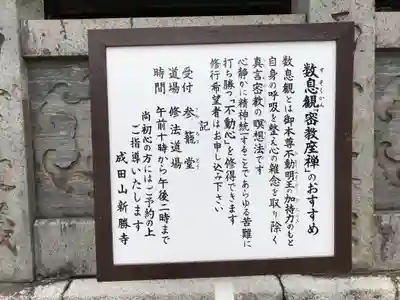 数息観密教座禅のおすすめ
すそくかん
数息観とは御本尊不動明王の加持力のもと
自身の呼吸を整え心の雑念を取り除く
真言密教の瞑想法です
心静かに精神統一することであらゆる苦難に
打ち勝つ「不動心」を修得できます
修行希望者はお申し込み下さい
記
受付 参籠堂
道場 修法道場
時間 午前十時から午後二時まで
尚初心の方にはご予約の上
ご指導いたします
成田山新勝寺